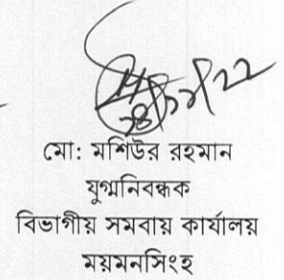 মো: মশিউর রহমান
যুগ্মনিবন্ধক
বিভাগীয় সমবায় কার্যালয়
ময়মনসিংহ